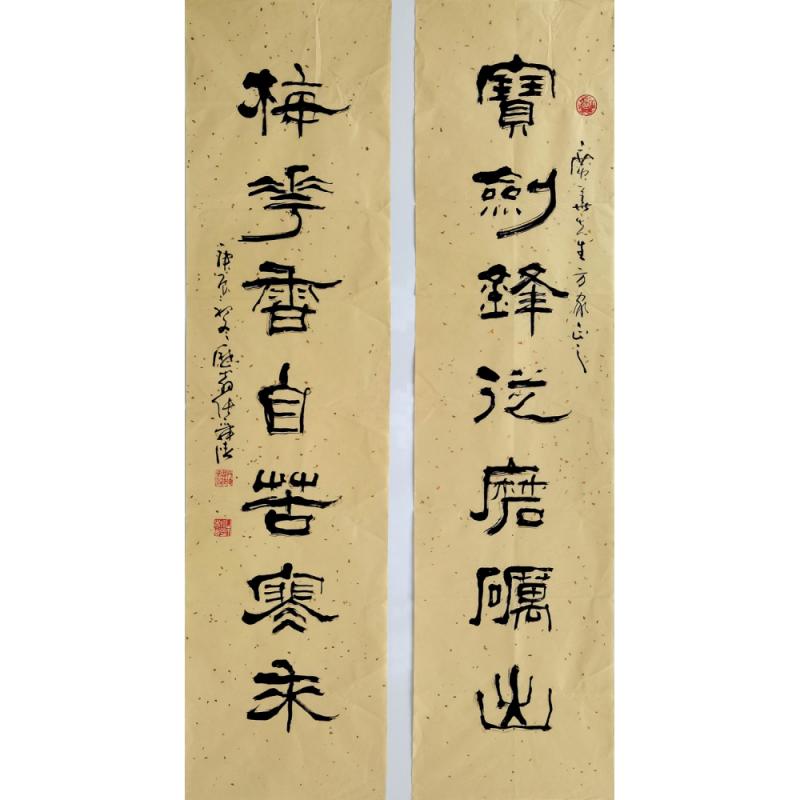 寶劍鋒從磨礪出
先生方家正之
梅花香自苦寒來
庚辰